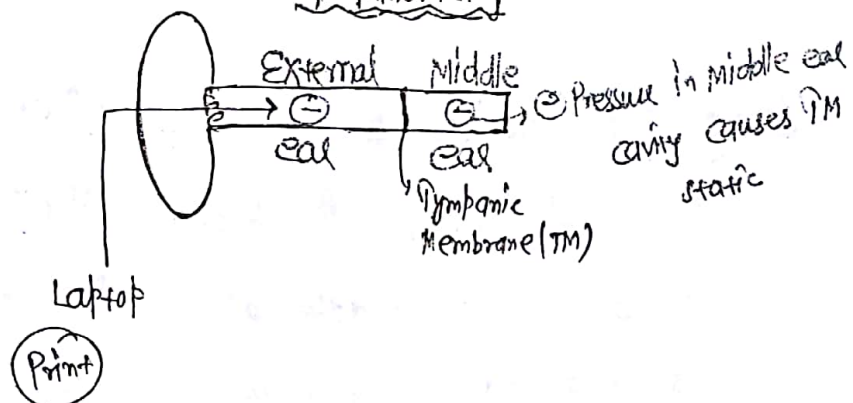 External
ear
Middle
ear
⊖
⊖
⊖ Pressure in Middle ear
cavity causes TM
static
Tympanic
Membrane (TM)
Laptop
Print